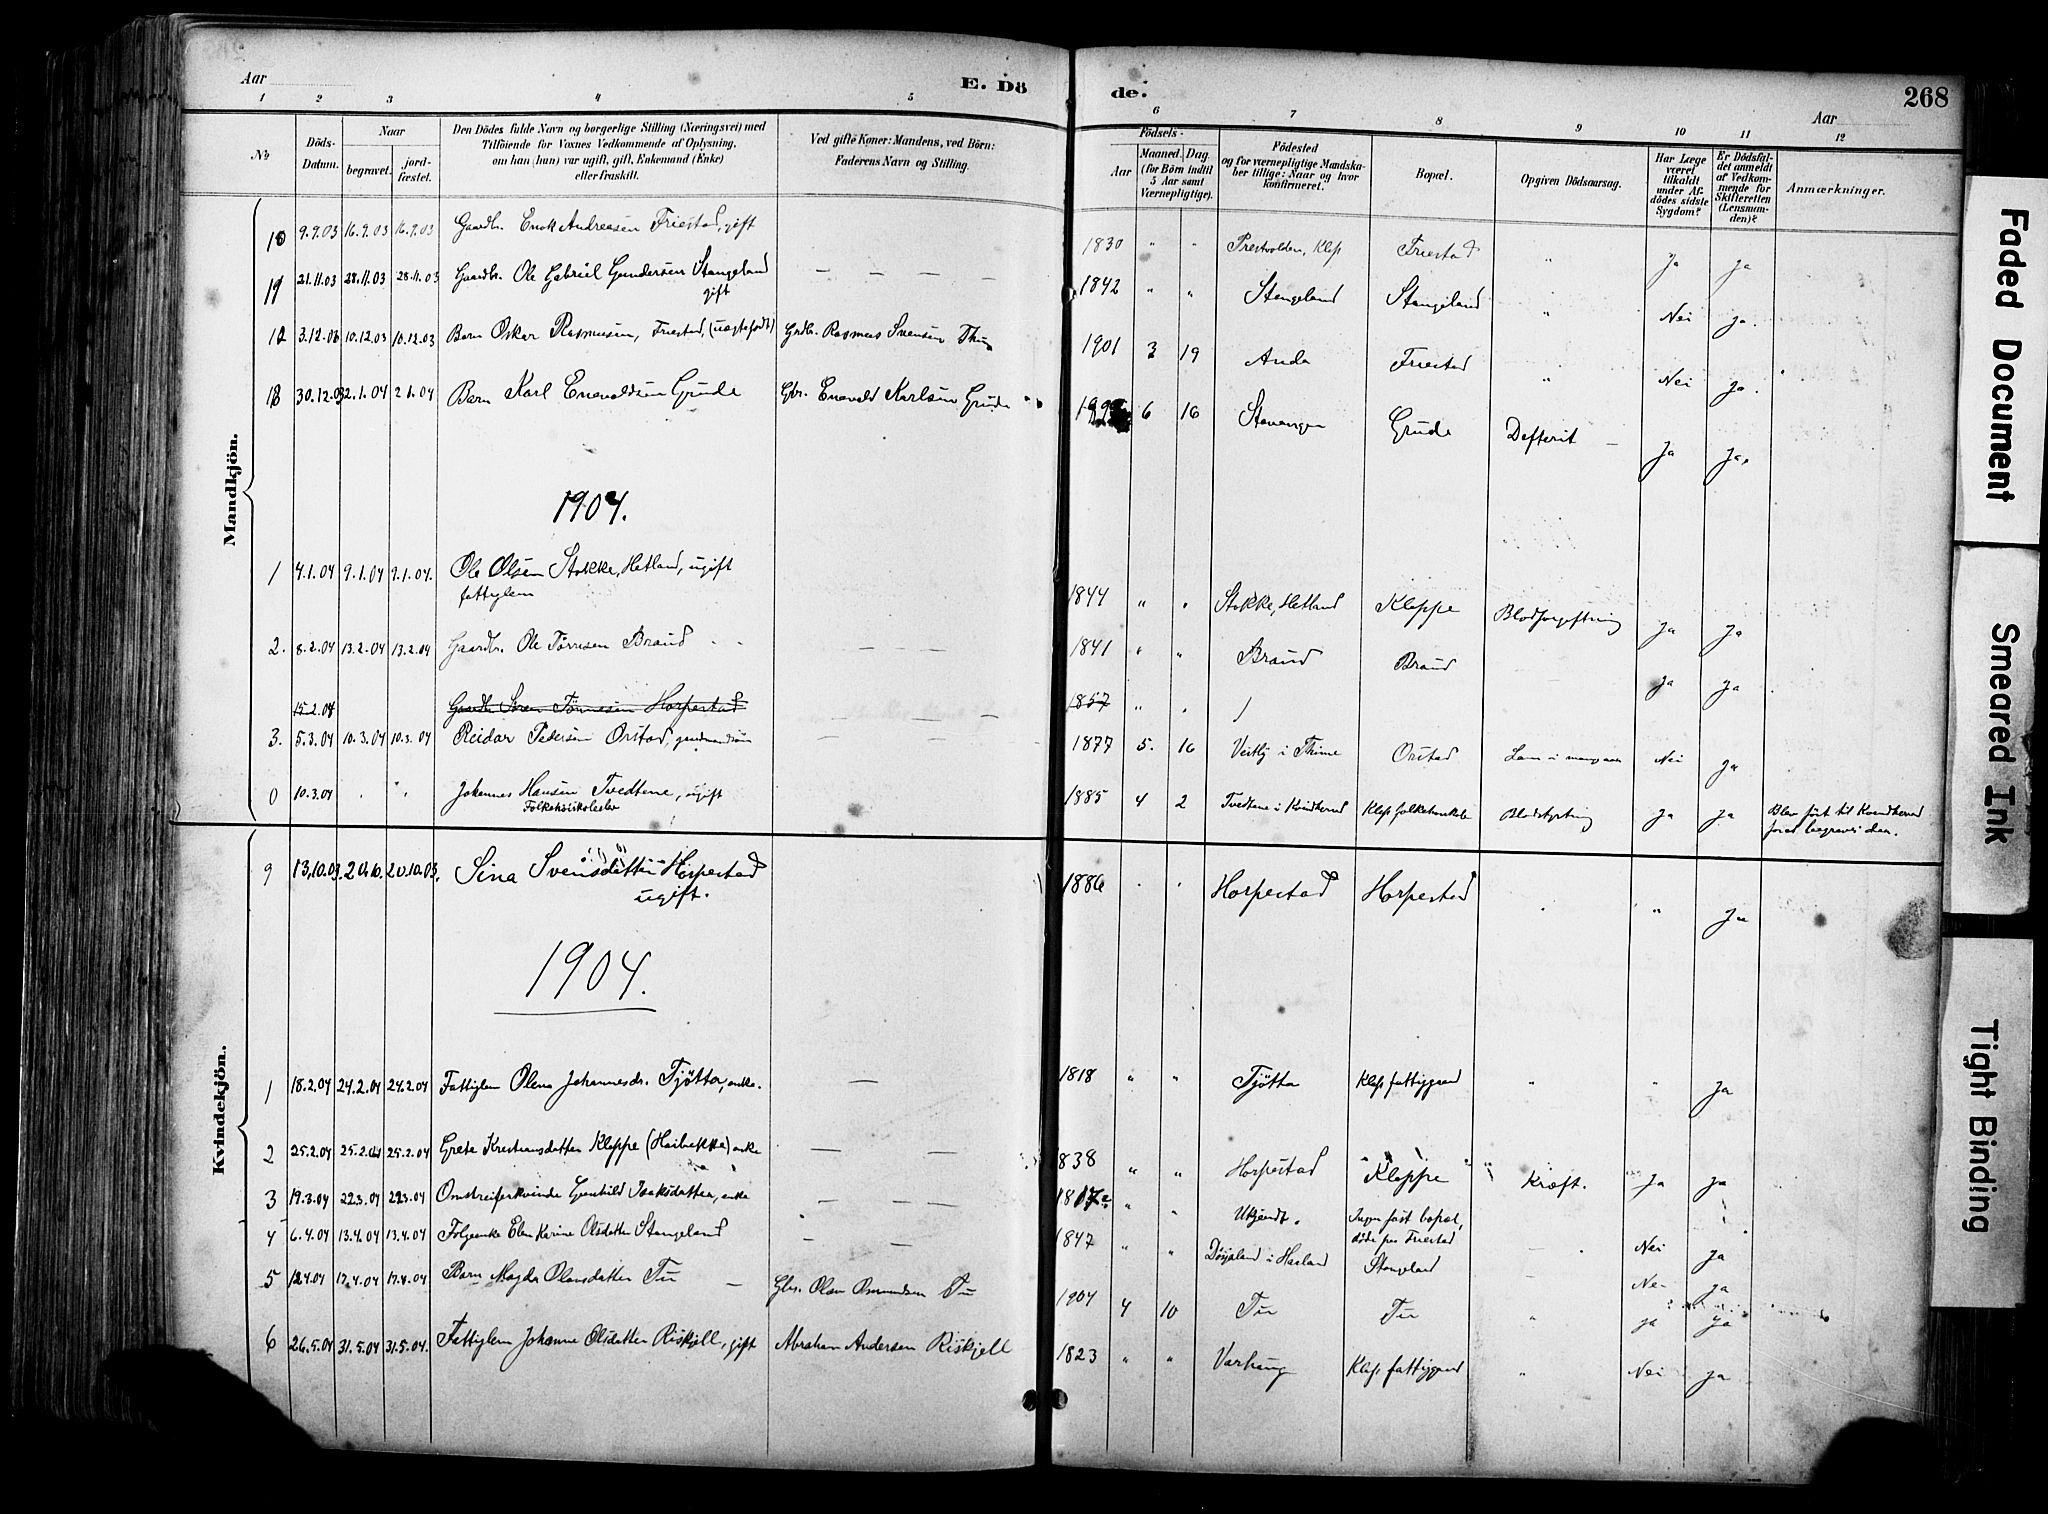 Aar
E. Dö
de.
Aar
268
1 2 3 4 5 6 7 8 9 10 11 12
No
Döds-Datum.
Naar
begravet. jord-fæstet.
Den Dödes fulde Navn og borgerlige Stilling (Næringsvei) med
Tilföiende for Voxnes Vedkommende af Oplysning,
om han (hun) var ugift, gift, Enkemand (Enke)
eller fraskilt.
Ved gifte Koner: Mandens, ved Börn:
Faderens Navn og Stilling.
Födsels-
Aar Maaned. Dag
(for Börn indtil
5 Aar samt
Værnepligtige).
Födested
og for værnepligtige Mandska-
ber tillige: Naar og hvor
konfirmeret.
Bopæl.
Opgiven Dödsaarsag.
Har Læge
været
tilkaldt
under Af-
dödes sidste
Sygdom?
Er Dödsfal-
det anmeldt
af Vedkom-
mende for
Skifteretten
(Lensman-
den)?
Anmærkninger.
Mandkjön.
10 9.9.03 16.9.03 16.9.03 Gaardbr. Enok Andreasen Friestad, gift 1830 " " Prestvolden, Klep Friestad " Ja Ja
11 21.11.03 28.11.03 28.11.03 Gaardbr. Ole Gabriel Gundersen Stangeland — — — — 1842 " " Stangeland Stangeland " Nei Ja.
gift
12 3.12.03 10.12.03 10.12.03 Barn Oskar Rasmussen, Friestad, (uægtefødt) Grdbr. Rasmus Svensen Thu 1901 3 19 Anda Friestad " Nei Ja.
13 30.12.03 2.1.04 2.1.04 Barn Karl Enevaldsen Grude Gbr. Enevald Karlsen Grude 6 16 Stavanger Grude Defterit — Ja Ja.
1904.
1 4.1.04 9.1.04 9.1.04. Ole Olsen Stokke, Hetland, ugift 1844 " " Stokke, Hetland Kleppe Blodforgiftning Ja Ja
fattiglem
2. 8.2.04 13.2.04 13.2.04 Gaardbr. Ole Tørresen Braud — — — 1841 " " Braud Braud — Ja Ja
15.2.04 Gaardbr Søren Tønnesen Horpestad — — — 1857 " "
3. 5.3.04 10.3.04 10.3.04 Reidar Pedersen Orstad, — — — 1877 5. 16 i Thime Orstad Lam i Nei Ja
0 10.3.04 " " Johannes Hansen Tvedtene, ugift 1885 4 2 Tvedtene i Kvindherred Klep folkehøiskole Blodstyrtning Ja Ja Blev ført til Kvindherred
Folkehøiskoleelev
for at begraves der.
Kvindekjön.
9 13.10.03. 20.10. 20.10.03. Sina Svensdatter Horpestad 1886 " " Horpestad Horpestad " " Ja
ugift.
1904.
1 18.2.04 24.2.04 24.2.04 Fattiglem Olena Johannesdr. Tjøtta, enke. — 1818 " " Tjøtta Klep fattiggaard " " Ja
2 25.2.04 25.2.04 25.2.04 Grete Kristiansdatter Kleppe (Haibakke) enke — — 1838 " " Horpestad Kleppe Kræft. Ja Ja
3 19.3.04 22.3.04 22.3.04 Omstreiferkvinde Gunhild Isaksdatter, enke — — — " " Ukjendt. Ingen fast bopæl,
døde paa Friestad
4 6.4.04 13.4.04 13.4.04 Folgeenke Elen Karine Olsdatter Stangeland — — 1847 " " i Haaland Stangeland — Nei Ja
5 12.4.04 17.4.04 17.4.04 Barn Magda Olausdatter Tu — Gbr. Olav Osmundsen Tu 1904 4 10 Tu Tu " Ja Ja
6 26.5.04 31.5.04 31.5.04. Fattiglem Johanne Olsdatter Riskjell, gift Abraham Andersen Riskjell 1823 " " Varhaug Klep fattiggaard " Nei Ja
Faded Document
Smeared Ink
Tight Binding